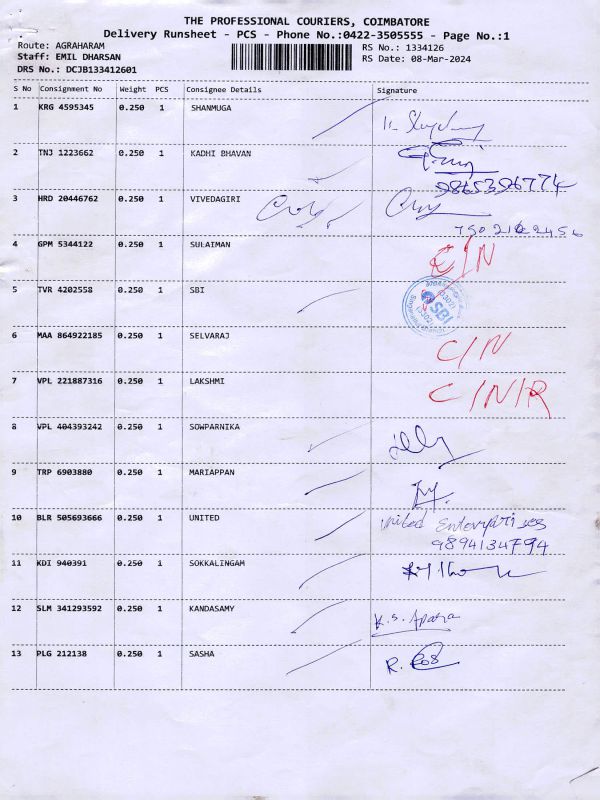 THE PROFESSIONAL COURIERS, COIMBATORE
Delivery Runsheet - PCS - Phone No.:0422-3505555 - Page No.:1
Route: AGRAHARAM
Staff: EMIL DHARSAN
DRS No.: DCJB133412601
RS No.: 1334126
RS Date: 08-Mar-2024
S No Consignment No Weight PCS Consignee Details Signature
1 KRG 4595345 0.250 1 SHANMUGA
2 TNJ 1223662 0.250 1 KADHI BHAVAN
9865396774
3 HRD 20446762 0.250 1 VIVEDAGIRI
4 GPM 5344122 0.250 1 SULAIMAN C/N
5 TVR 4202558 0.250 1 SBI SBI
6 MAA 864922185 0.250 1 SELVARAJ C/N
7 VPL 221887316 0.250 1 LAKSHMI C/N/R
8 VPL 404393242 0.250 1 SOWPARNIKA
9 TRP 6903880 0.250 1 MARIAPPAN
10 BLR 505693666 0.250 1 UNITED United Enterprises
9894134794
11 KDI 940391 0.250 1 SOKKALINGAM
12 SLM 341293592 0.250 1 KANDASAMY K.S.
13 PLG 212138 0.250 1 SASHA R.